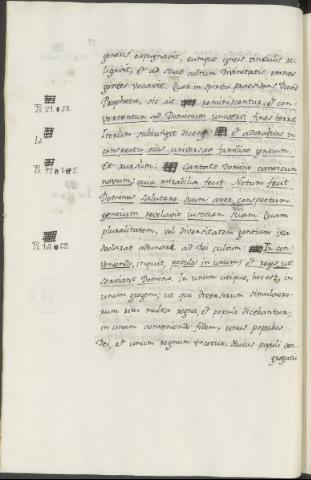 generis expugnavit, eumque igneis vinculis re-
ligavit, et ad suae cultum Divinitatis omnes
gentes vocavit. Quas in spiritu praevidens David
Propheta, sic ait. reminiscentur, et con-
Ps. 21. 28.
vertentur ad Dominum universi fines terrae
Iterum subiungit dicens et adorabunt in
conspectu eius universae familiae gentium.
Et rursum: Cantate Domino canticum
Ps. 97. 2.
novum: quia mirabilia fecit Notum fecit
Dominus salutare suum: ante conspectum
gentium revelavit iustitiam suam Quam
pluralitatem, vel diversitatem gentium ita
declarat adunare ad dei cultum: In con-
Ps. 23.
veniendo, inquit, populos in unum: et reges ut
serviant Domino. In unum utique, hoc est, in
unum gregem; ut qui diversorum simulacro-
rum multa regna, et populi dicebantur;
in unam conveniendo fidem, unus populus
Dei, et unum regnum vocetur. Huius populi con-
gregatio